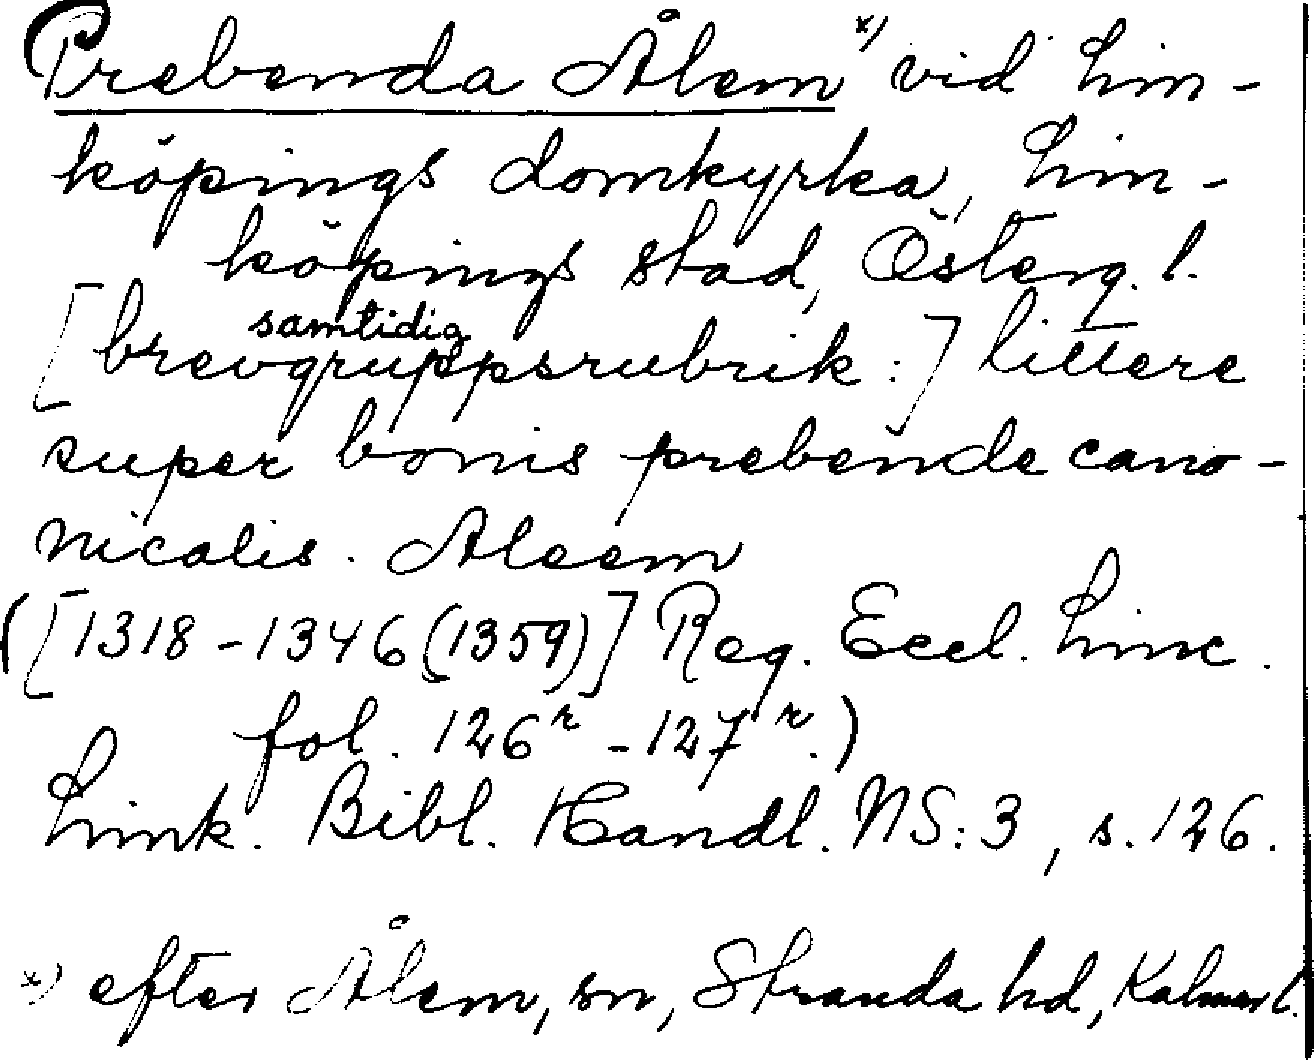 Prebenda Ålem x) vid Lin-
köpings domkyrka, Lin-
köpings stad, Österg. l.
samtidig
[brevgruppsrubrik:] littere
super bonis prebende cano-
nicalis. Aleem
([1318-1346(1359)] Reg. Eccl. Linc.
fol. 126r-127r.)
Link. Bibl. Handl. NS:3, s. 126.
x) efter Ålem, sn, Stranda hd, Kalmar l.